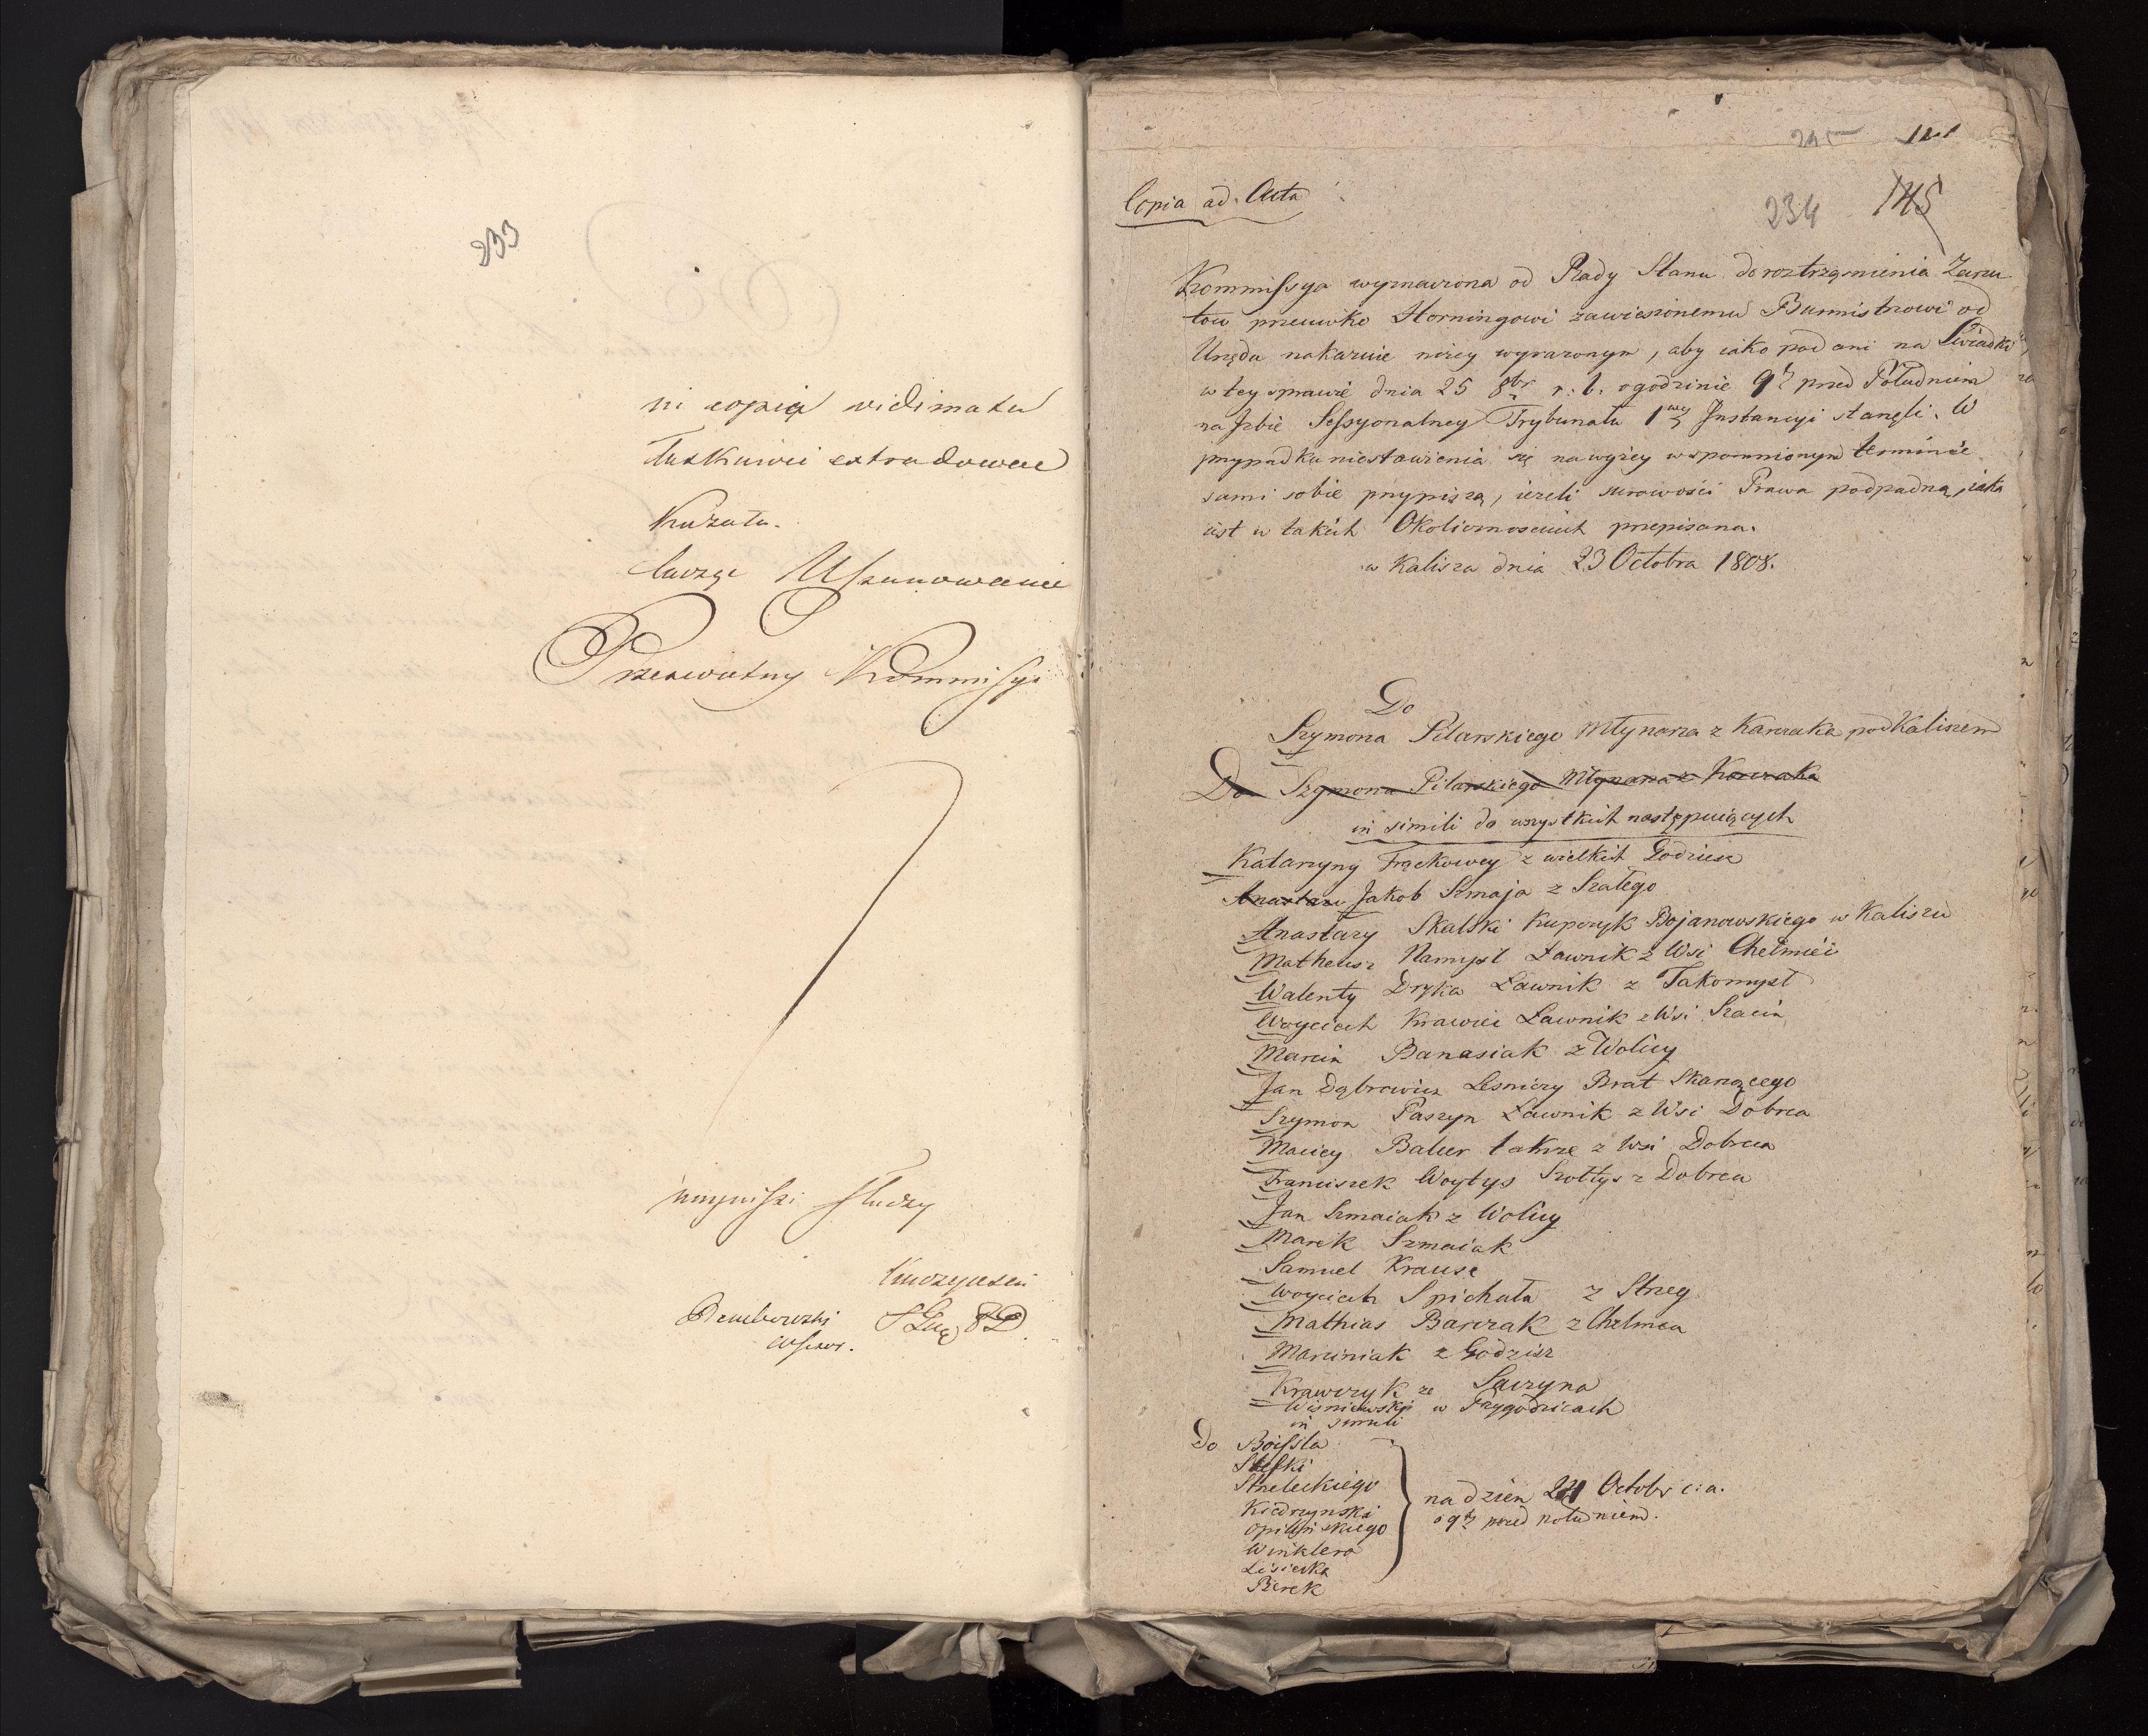 233
ni copią vidimata
łaskawie extradować
Kazała.
łączę Uszanowanie
Prześwietny Kommissyi
nayniższi słudzy
Dembowski
Assesor.
245 121
234 145
Copia ad Acta
Kommissya wyznaczona od Rady Stanu do roztrząśnienia Zarzu
tow przeciwko Horningowi zawieszonemu Burmistrowi od
Urzędu nakazuie niżey wyrażonym, aby iako podani na Swiadków,
w tey sprawie dnia 25 8br r. b. o godzinie 9tey przed Południem
na Izbie Sessyonalney Trybunału 1wszey Instancyi stanęli. W
przypadku niestawienia się na wyżey wspomnionym terminie
sami sobie przypiszą, ieżeli surowości Prawa podpadną, iaka
iest w takich Okolicznosciach przepisana.
w Kaliszu dnia 23 Octobra 1808.
Do
Szymona Pilarskiego Młynarza z Karczaka pod Kaliszem
Do Szymona Pilarskiego Młynarza z Korczaka
in simili do wszystkich następuiących
Katarzyny Frąckowey z wielkich Godziesz
Anastazy Jakob Szmaja z Szałego
Anastazy Skalski Kupczyk Bojanowskiego w Kaliszu
Matheusz Namysł Ławnik z Wsi Chełmici
Walenty Dryka Ławnik z Takomyśl
Woyciech Krawiec Ławnik z Wsi Szacin
Marcin Banasiak z Wolicy
Jan Dąbrowicz Lesniczy Brat Skarzącego
Szymon Paszyn Ławnik z Wsi Dobrca
Maciey Balcer także z Wsi Dobrca
Franciszek Woytys Szołtys z Dobrca
Jan Szmaiak z Wolicy
Marek Szmaiak
Samuel Krause
Woyciech Spichała z Strzeg
Mathias Barczak z Chełmca
Marciniak z Godzisz
Krawczyk ze Saczyna
Wisniewski w Przygodzicach
in simili
Do Boissla
Strzeleckiego
Kiedrzynski
Opilinskiego
Winklera
Lisiecka
Berek
na dzien 24 Octobr c: a.
o 9tey przed południem.